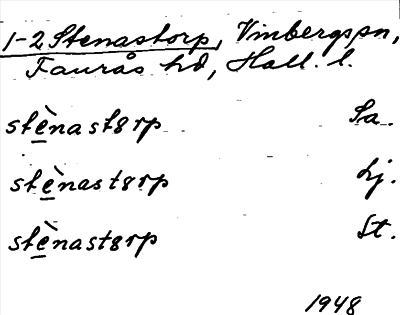 1-2 Stenastorp, Vinbergs sn,
Faurås hd, Hall. l.
stènastɵrp Sa.
stènastɵrp Lj.
stènastɵrp St.
1948